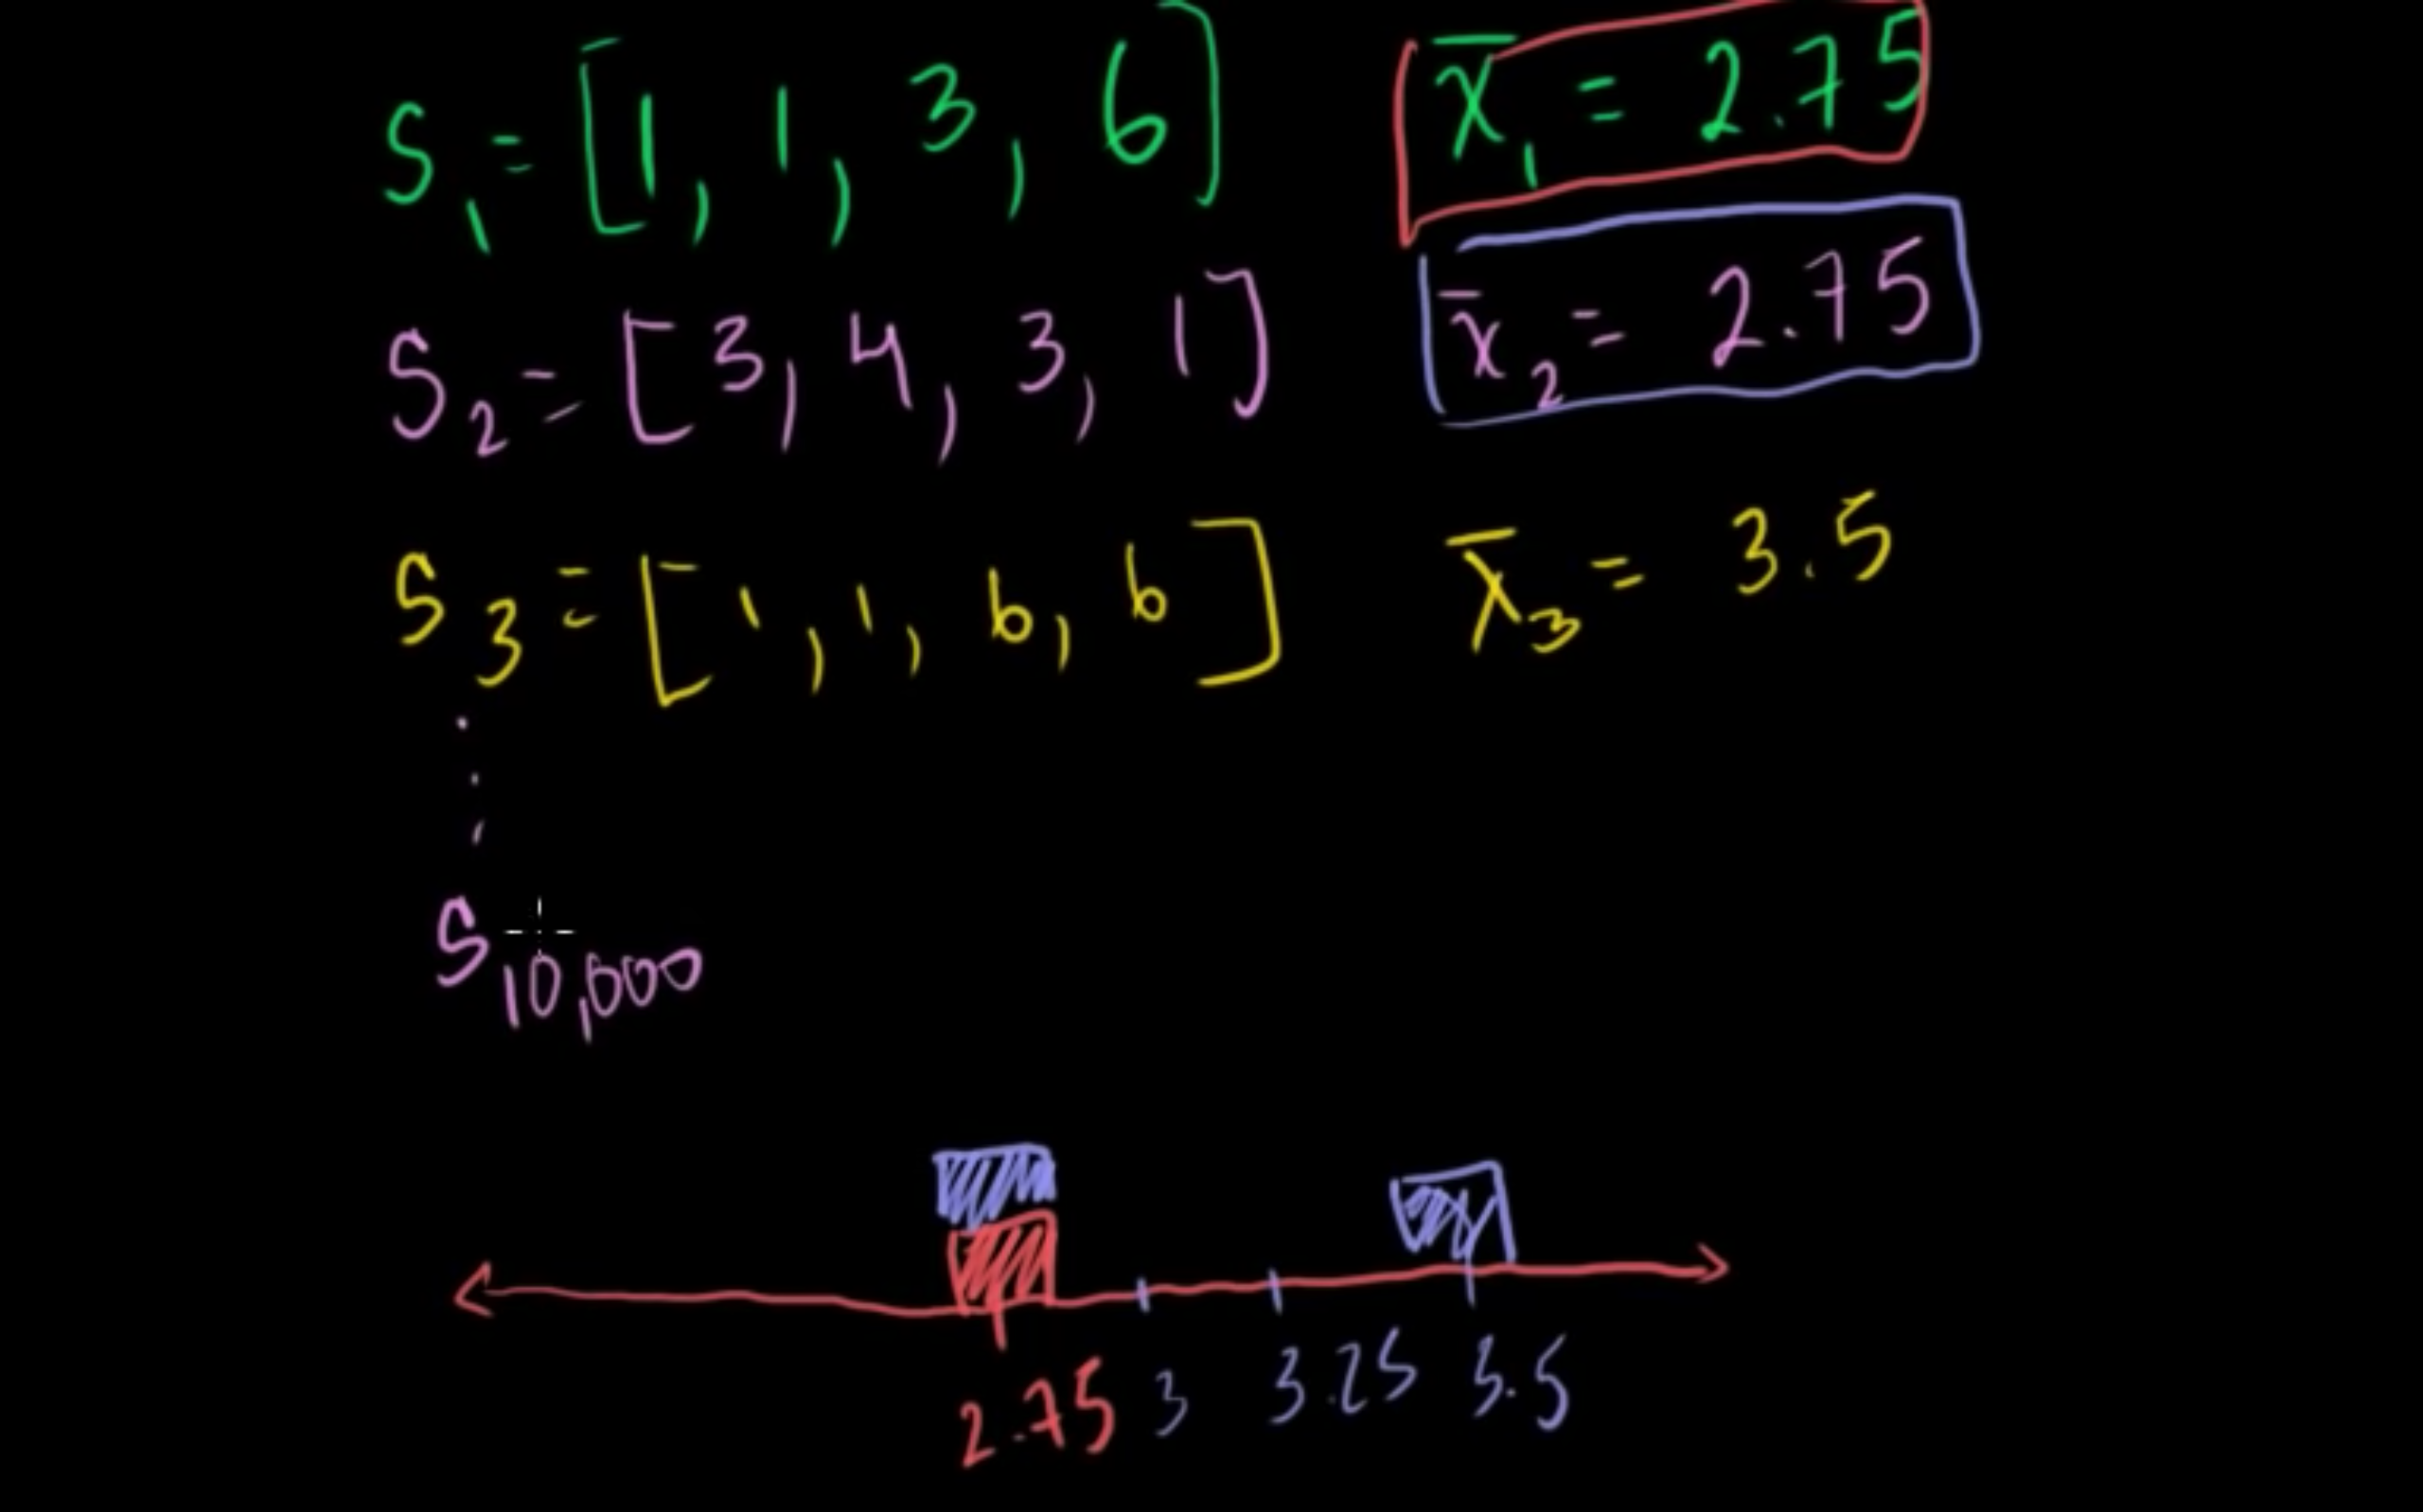 S₁ = [1, 1, 3, 6] x̄₁ = 2.75
S₂ = [3, 4, 3, 1] x̄₂ = 2.75
S₃ = [1, 1, 6, 6] x̄₃ = 3.5
S₁₀,₀₀₀
2.75 3 3.25 3.5